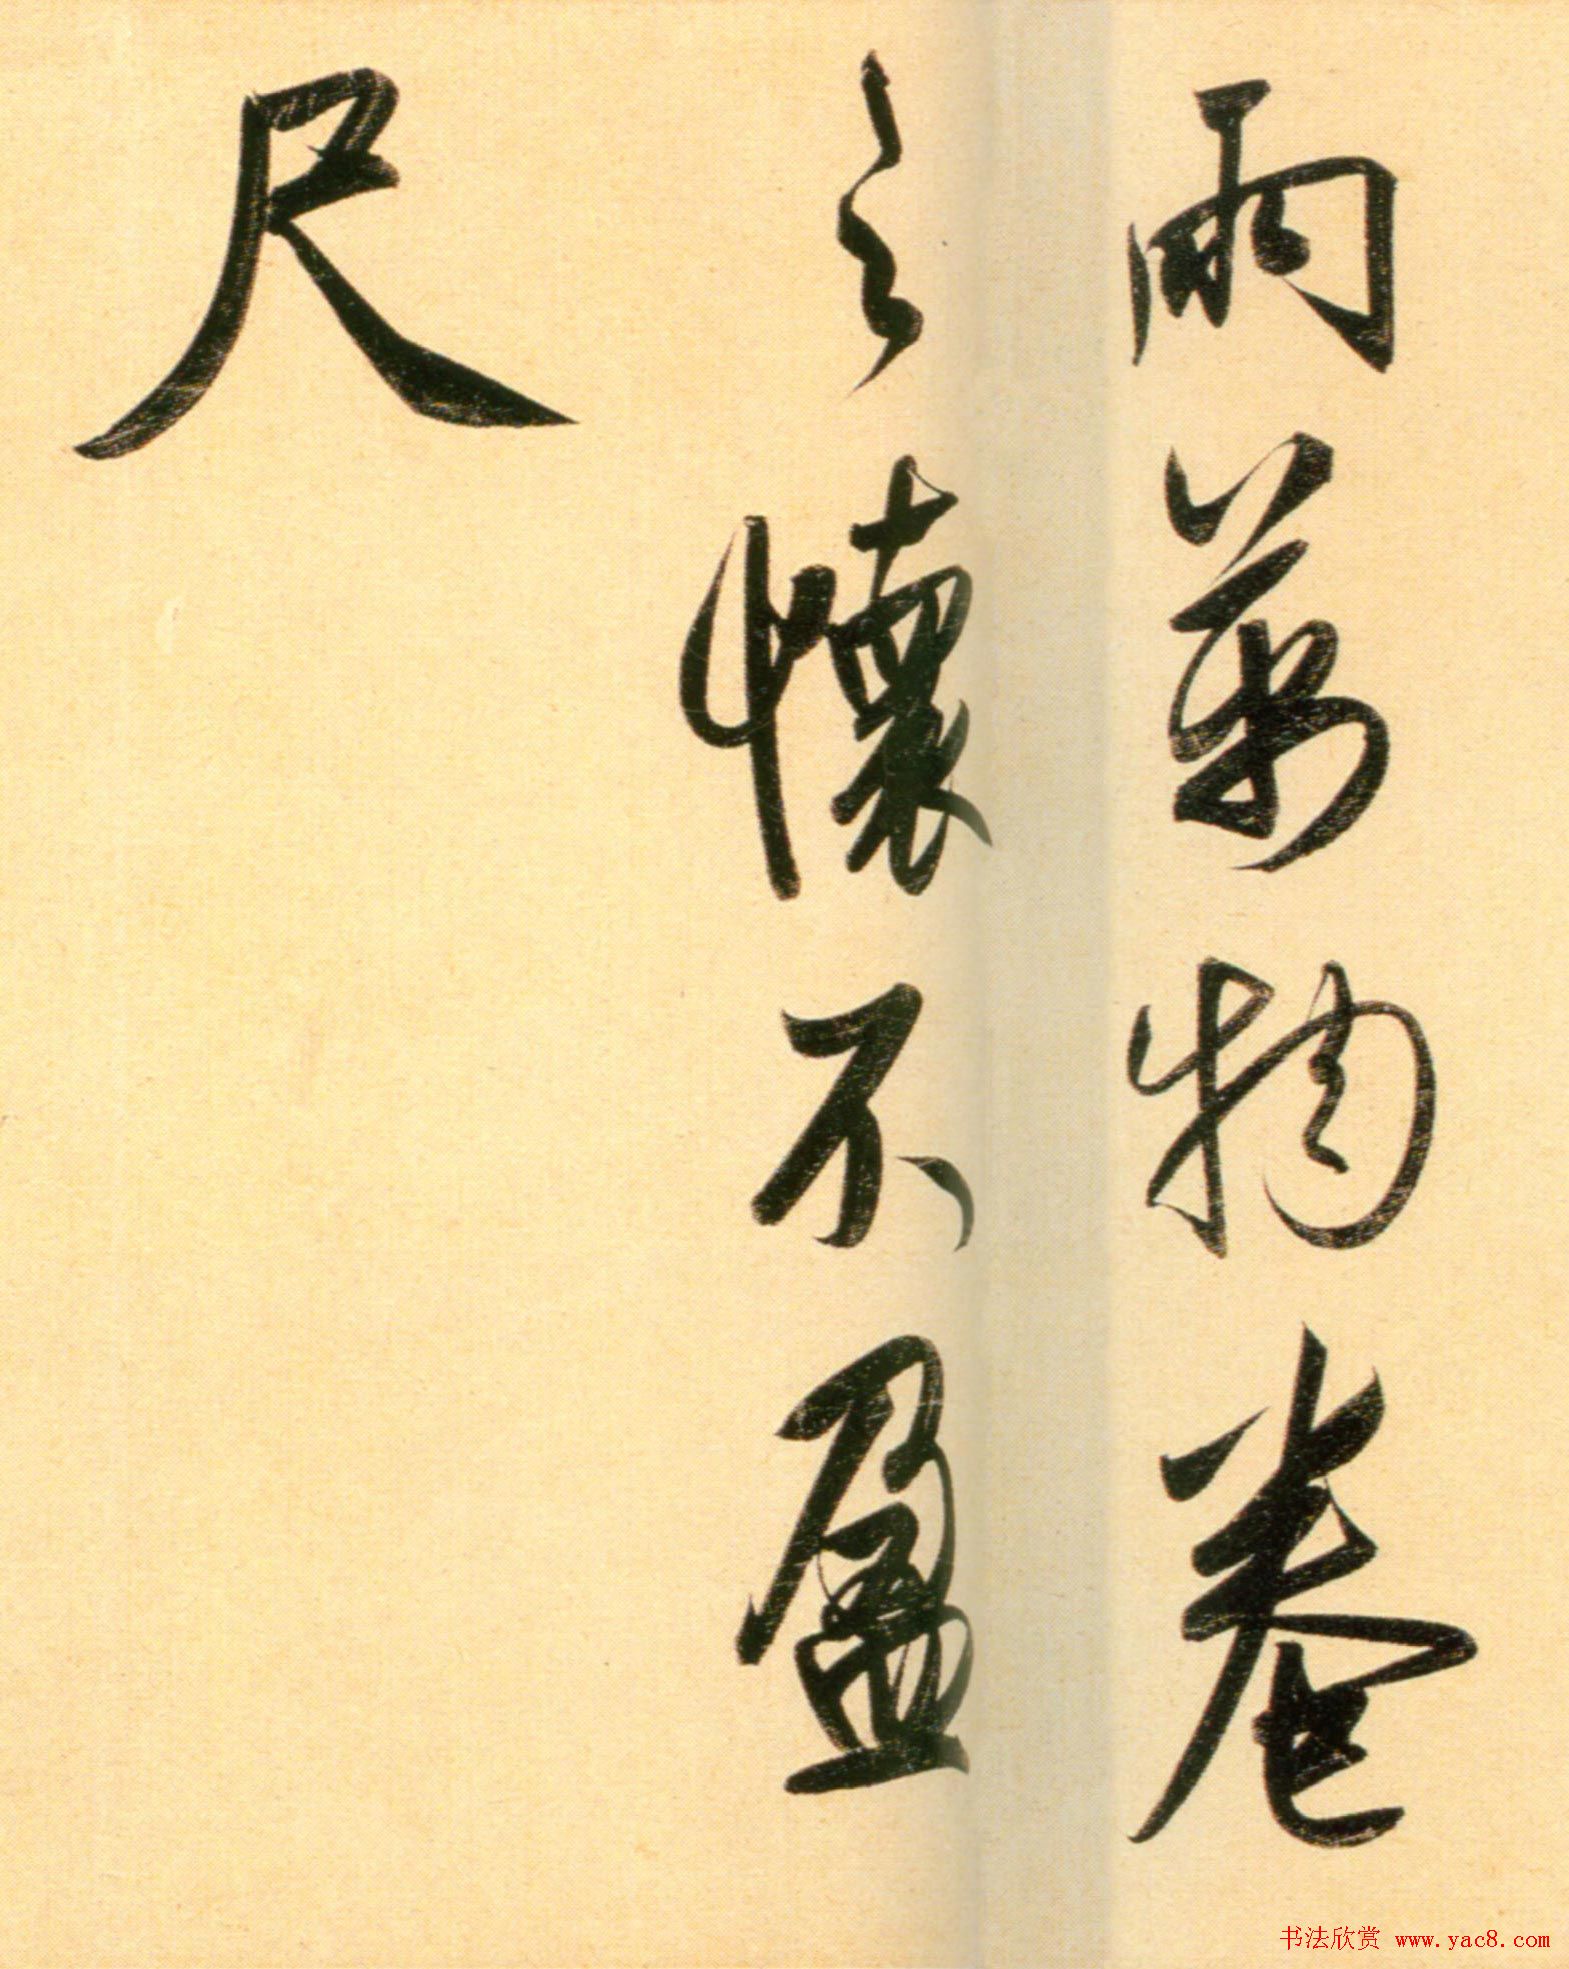 雨萬物卷
之懷不盈
尺
书法欣赏 www.yac8.com